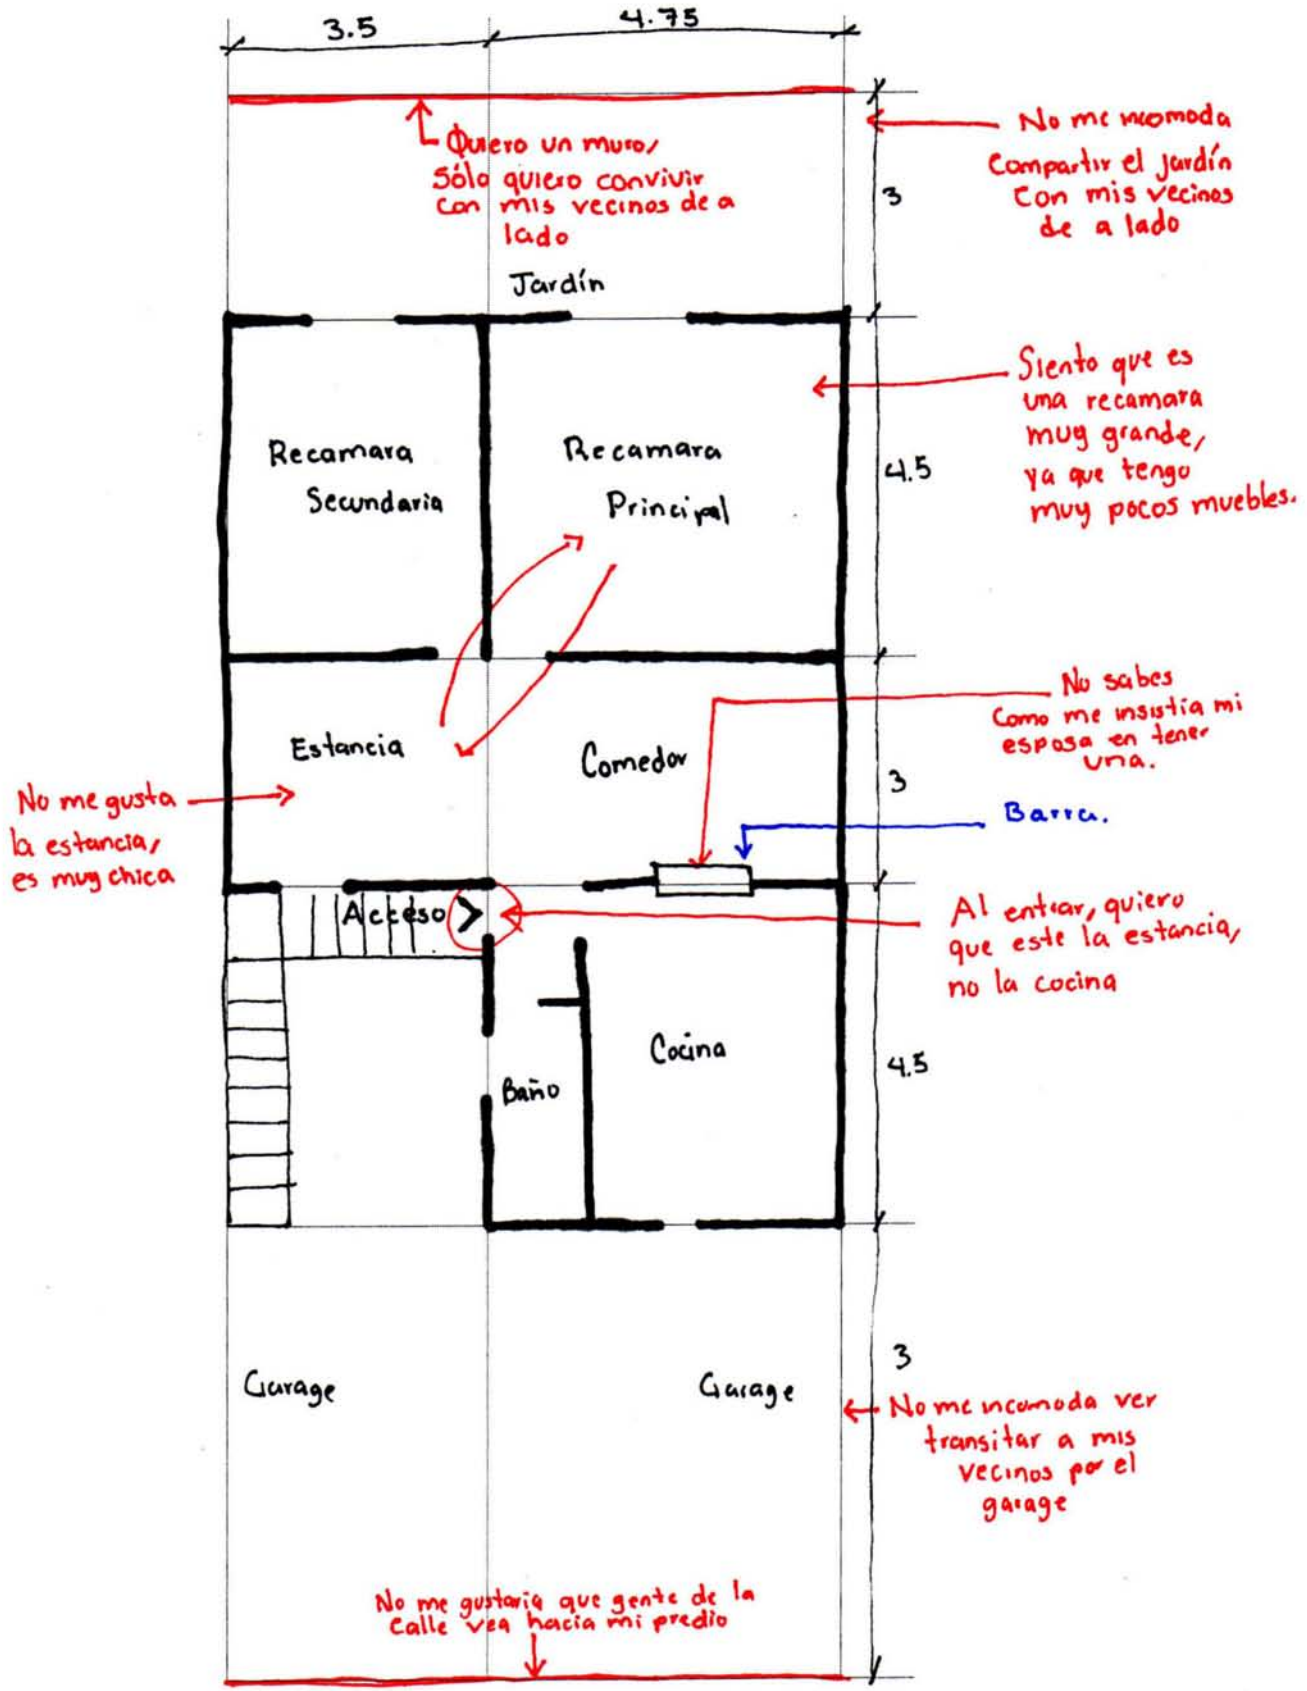 3.5
4.75
Quiero un muro,
Sólo quiero convivir
con mis vecinos de a
lado
No me incomoda
Compartir el jardín
Con mis vecinos
de a lado
3
Jardín
Siento que es
una recamara
muy grande,
ya que tengo
muy pocos muebles.
Recamara
Secundaria
Recamara
Principal
4.5
No sabes
Como me insistía mi
esposa en tener
una.
Estancia
Comedor
3
No me gusta
la estancia,
es muy chica
Barra.
Acceso
Al entrar, quiero
que este la estancia,
no la cocina
Cocina
Baño
4.5
3
Garage
Garage
No me incomoda ver
transitar a mis
vecinos por el
garage
No me gustaria que gente de la
Calle vea hacia mi predio